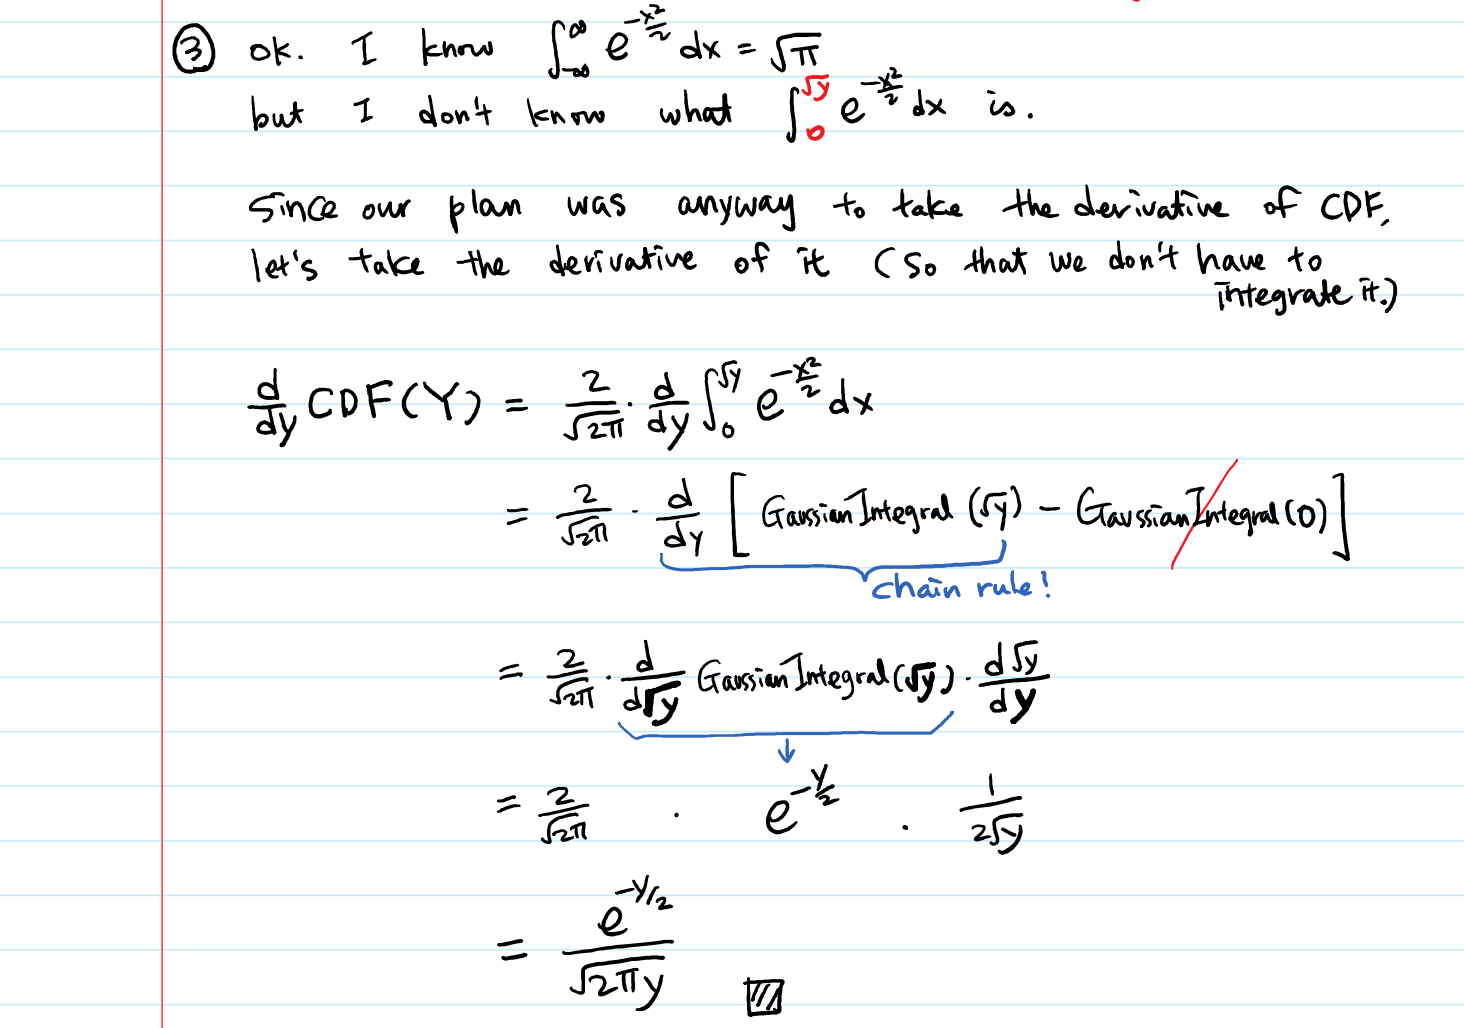 ③ ok. I know ∫_{-∞}^{∞} e^{-x²/2} dx = √π
but I don't know what ∫_0^{√y} e^{-x²/2} dx is.
Since our plan was anyway to take the derivative of CDF,
let's take the derivative of it (So that we don't have to
integrate it.)
d/dy CDF(Y) = 2/√2π · d/dy ∫_0^{√y} e^{-x²/2} dx
= 2/√2π · d/dy [Gaussian Integral (√y) - Gaussian Integral (0)]
chain rule!
= 2/√2π · d/d√y Gaussian Integral (√y) · d√y/dy
↓
= 2/√2π · e^{-y/2} · 1/2√y
= e^{-y/2}/√2πy